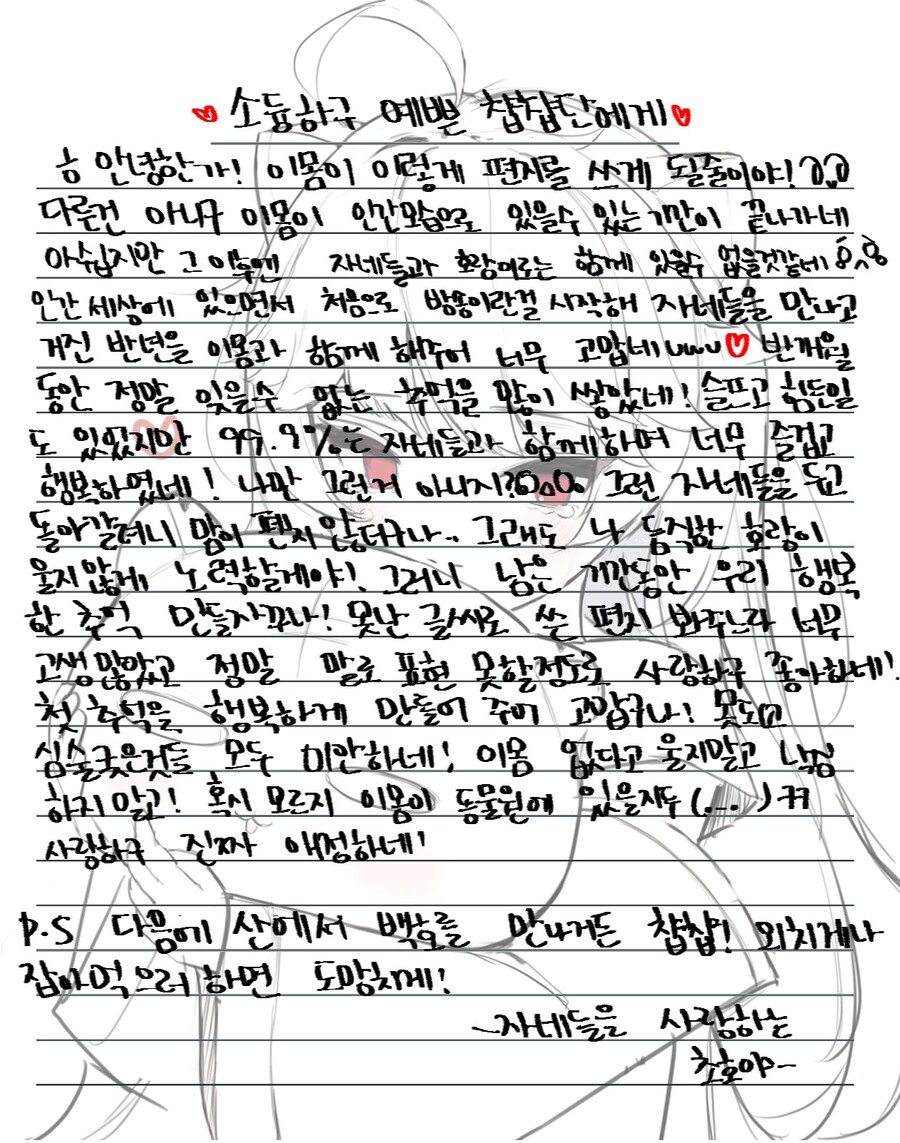 소듕하구 예쁜 챱챱단에게
흠 안녕한가! 이몸이 이렇게 편지를 쓰게 될줄이야!
다름건 아니구 이몸이 인간모습으로 있을수 있는 기간이 끝나가네
아쉽지만 그 이후엔 자네들과 호랑이로는 함께 있을수 없을것같네
인간 세상에 있으면서 처음으로 방송이란걸 시작해 자네들을 만나고
거진 반년을 이몸과 함께 해주어 너무 고맙네 uwu♡ 반개월
동안 정말 잊을수 없는 추억을 많이 쌓았네! 슬프고 힘든일
도 있었지만 99.9%는 자네들과 함께하며 너무 즐겁고
행복하였네! 나만 그런거 아니지? 그런 자네들을 두고
돌아갈려니 맘이 편치 않더구나.. 그래도 나 듬직한 호랑이
울지않게 노력할게야! 그러니 남은 기간동안 우리 행복
한 추억 만들자꾸나! 못난 글씨로 쓴 편지 봐주느라 너무
고생많았고 정말 말로 표현 못할정도로 사랑하구 좋아하네!
첫 추억을 행복하게 만들어 주어 고맙구나! 못되고
심술궂은것들 모두 미안하네! 이몸 없다고 울지말고 낙심
하지 말고! 혹시 모르지 이몸이 동물원에 있을지두 (....) ㅋㅋ
사랑하구 진짜 애정하네!
P.S 다음에 산에서 백호를 만나거든 챱챱! 외치거나
잡아먹으려 하면 도망치게!
-자네들을 사랑하는
초호야-